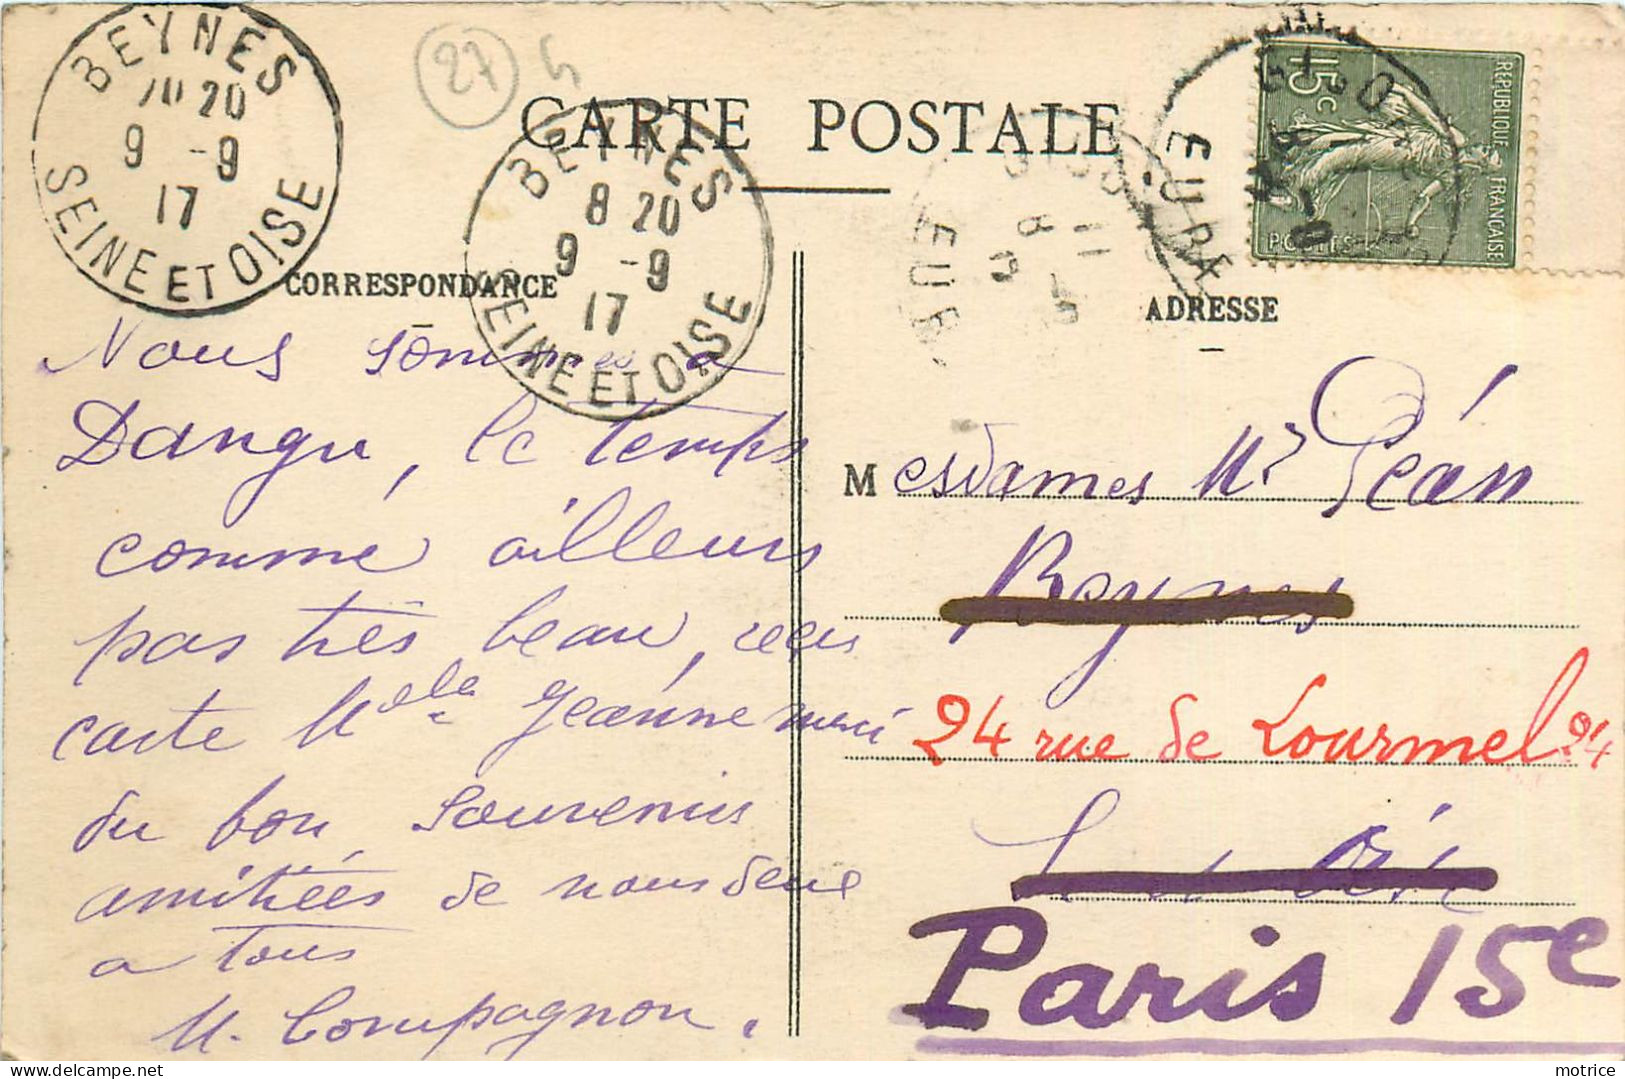 BEYNES
20
9 -9
17
SEINE ET OISE
27
CARTE POSTALE
BEYNES
8 20
9 -9
17
SEINE ET OISE
EURE
15c
REPUBLIQUE FRANÇAISE
POSTES
CORRESPONDANCE
ADRESSE
Nous sommes a
Dangu, le temps
comme ailleurs
pas très beau, reçu
carte Melle Jeanne merci
du bon souvenir
amitiées de nous deux
a tous
M. Compagnon.
Mesdames Mr Géan
Beynes
24 rue de Lourmel 24
Paris 15e
matrice